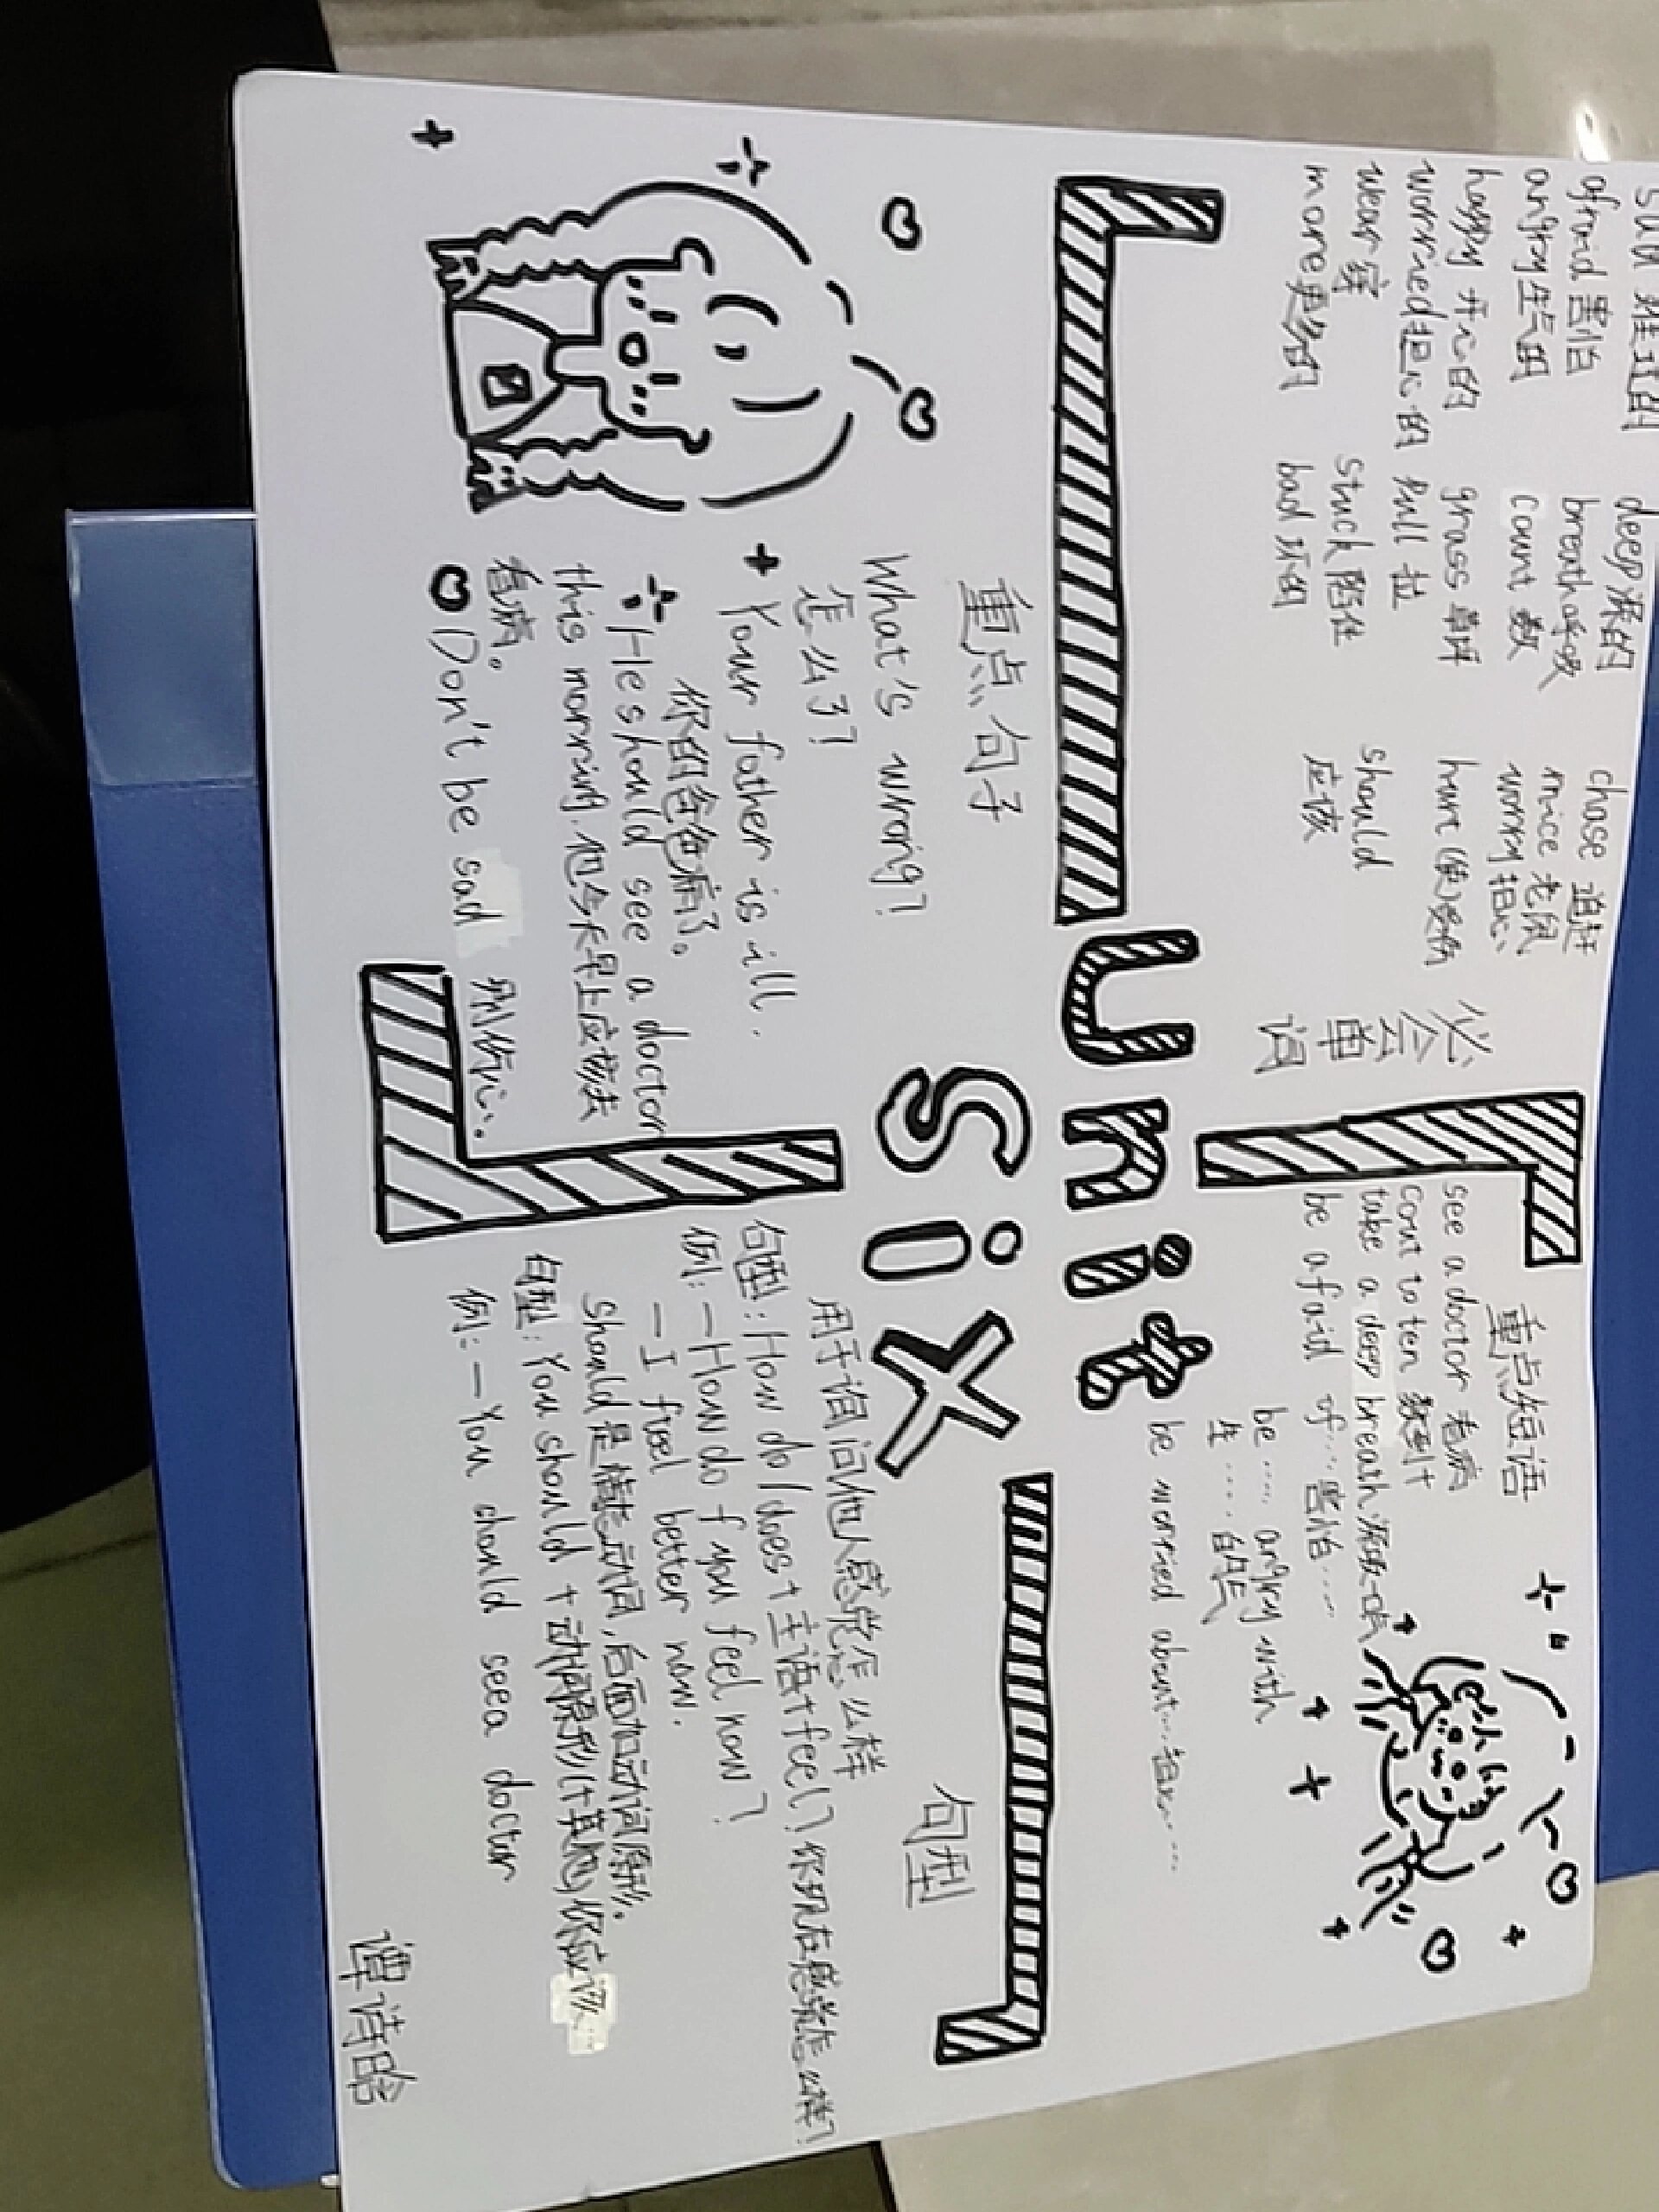 sad 难过的
afraid 害怕
angry 生气的
happy 开心的
worried 担心的
wear 穿
more 更多的
deep 深的
breath 呼吸
count 数
grass 草坪
pull 拉
stuck 陷住
bad 坏的
chase 追赶
mice 老鼠
worry 担心
hurt (使)受伤
should
应该
必会单词
重点短语
see a doctor 看病
cont to ten 数到十
take a deep breath 深吸一口气
be afaid of…害怕……
be …… angry with
生……的气
be worried about…担心……
Unit
Six
重点句子
What's wrong?
怎么了?
Your father is ill.
你的爸爸病了。
He should see a doctor
this morning. 他今天早上应该去
看病。
Don't be sad 别伤心.
句型
用于询问他人感觉怎么样
句型: How do/does+主语+feel? 你现在感觉怎么样?
例: —How do you feel now?
—I feel better now.
Should 是情态动词, 后面加动词原形.
句型: You should + 动词原形(+其他) 你应该…
例: —You should see a doctor
谭诗晗